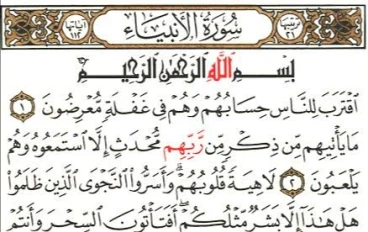 ترتيبها ٢١ سُورَةُ الأَنبِيَاءِ آياتها ١١٢
بِسْمِ اللَّهِ الرَّحْمَٰنِ الرَّحِيمِ
ٱقْتَرَبَ لِلنَّاسِ حِسَابُهُمْ وَهُمْ فِى غَفْلَةٍ مُّعْرِضُونَ ١
مَا يَأْتِيهِم مِّن ذِكْرٍ مِّن رَّبِّهِم مُّحْدَثٍ إِلَّا ٱسْتَمَعُوهُ وَهُمْ
يَلْعَبُونَ ٢ لَاهِيَةً قُلُوبُهُمْ وَأَسَرُّوا۟ ٱلنَّجْوَى ٱلَّذِينَ ظَلَمُوا۟
هَلْ هَٰذَآ إِلَّا بَشَرٌ مِّثْلُكُمْ أَفَتَأْتُونَ ٱلسِّحْرَ وَأَنتُمْ